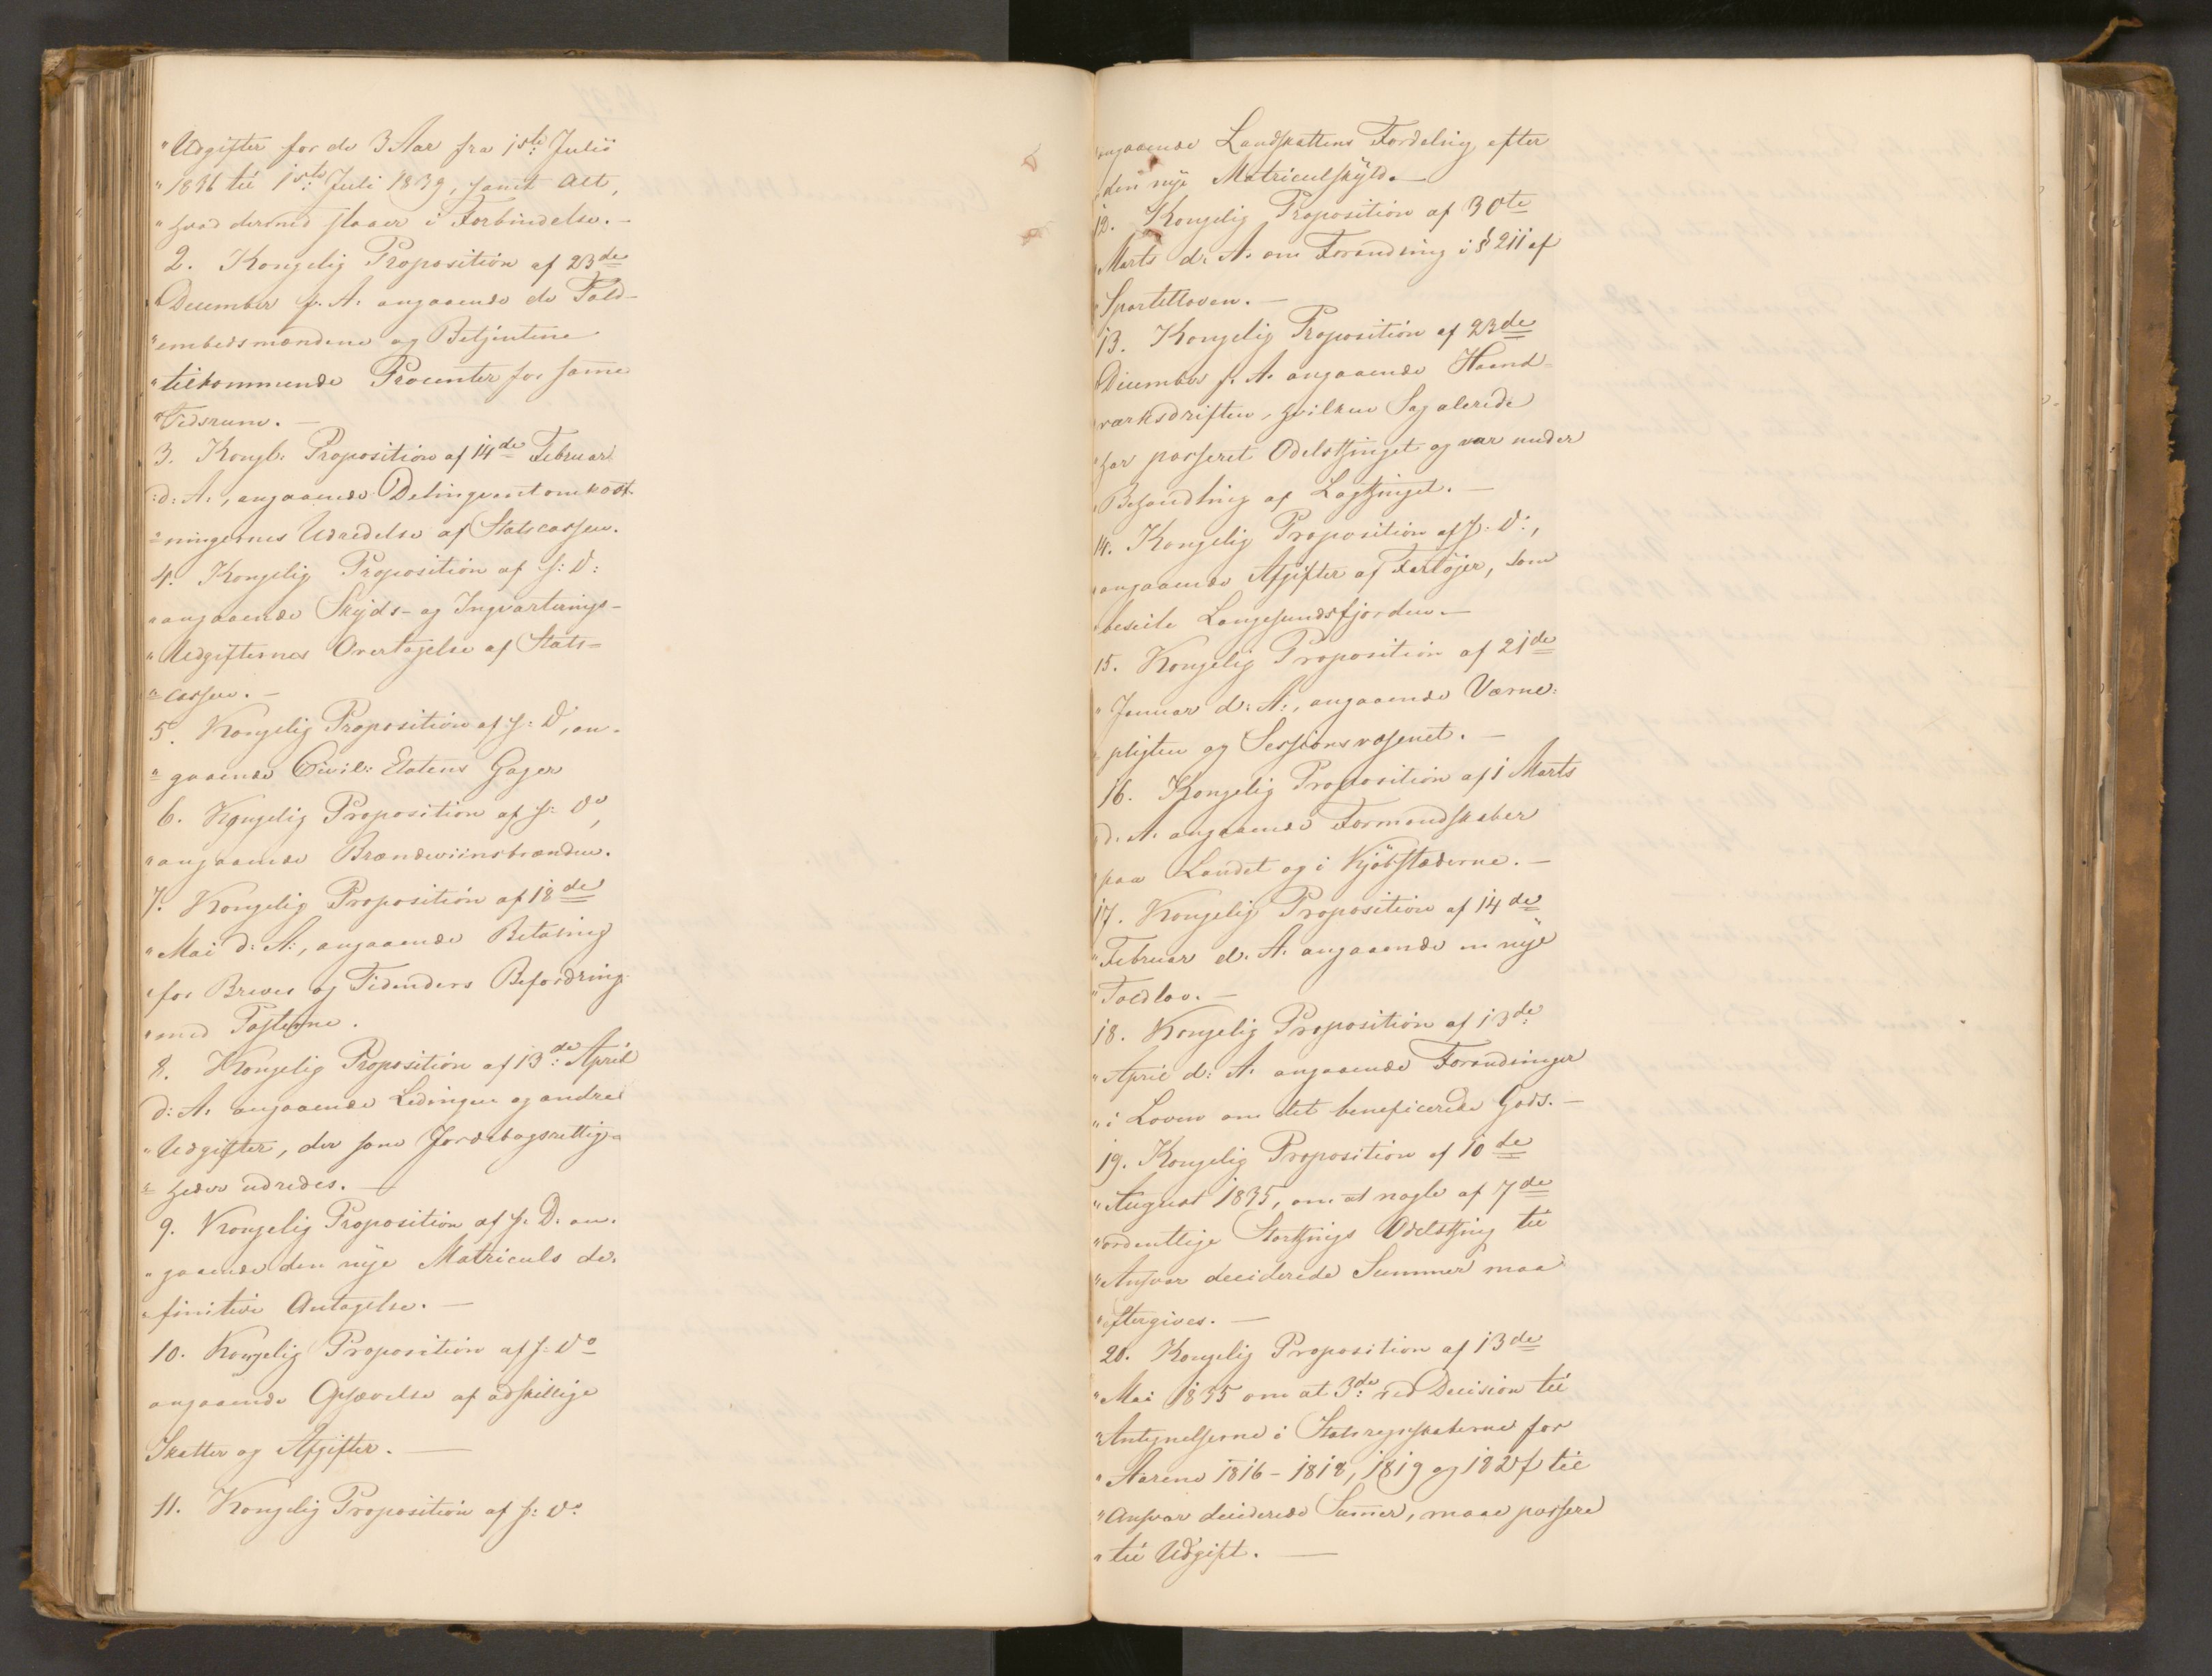 "Udgifter for de 3 Aar fra 1ste Julii
"1836 til 1ste Juli 1839, samt Alt,
"hvad dermed staaer i Forbindelse. —
2. Kongelig Proposition af 23de
"December f. A. angaaende de Told-
"embedsmændene og Betjentene
"tilkommende Procenter for samme
"Tidsrum. —
3. Kongl: Proposition af 14de Februar
"d: A:, angaaende Delinqventomkost-
"ningernes Udredelse af Statscassen.
4. Kongelig Proposition af s: D:
"angaaende Skyds- og Inqvarterings-
"Udgifternes Overtagelse af Stats-
"cassen. —
5. Kongelig Proposition af s: D, an-
"gaaende Civil: Etatens Gager
6. Kongelig Proposition af s: Do,
"angaaende Brændeviinsbrænden.
7. Kongelig Proposition af 18de
"Mai d: A:, angaaende Betaling
"for Breves og Tidenders Befordring
"med Posterne.
8. Kongelig Proposition af 13de: April
d: A. angaaende Ledingen og andre
"Udgifter, der som Jordebogsrettig-
"heder udredes. —
9. Kongelig Proposition af s. D. an-
"gaaende den nye Matriculs de-
"finitive Antagelse. —
10. Kongelig Proposition af s: Do
angaaende Ophævelse af adskillige
Skatter og Afgifter. —
11. Kongelig Proposition af s: Do
angaaende Landskattens Fordeling efter
den nye Matriculskyld. —
12. Kongelig Proposition af 30te
"Marts d: A. om Forandring i § 211 af
"Sportelloven. —
13. Kongelig Proposition af 23de
December f. A. angaaende Haand-
værksdriften, hvilken Sag alerede
"har passeret Odelsthinget og var under
"Behandling af Lagthinget. —
14. Kongelig Proposition af s: D:,
"angaaende Afgifter af Fartøjer, som
beseile Langesundsfjorden. —
15. Kongelig Proposition af 21de
"Januar d: A:, angaaende Værne-
"pligten og Sessionsvæsenet. —
16. Kongelig Proposition af 1 Marts
"d. A. angaaende Formandskaber
"paa Landet og i Kjøbstæderne. —
17. Kongelig Proposition af 14de
"Februar d. A. angaaende en nye
"Toldlov. —
18. Kongelig Proposition af 13de
"April d: A. angaaende Forandringer
"i Loven om det beneficerede Gods. —
19. Kongelig Proposition af 10de
"August 1835, om at nogle af 7de
"ordentlige Storthings Odelsthing til
"Ansvar deciderede Summer maa
"eftergives. —
20. Kongelig Proposition af 13de
"Mai 1835 om at 3de ved Decision til
"Antegnelserne i Statsregnskaberne for
"Aarene 1816 - 1818, 1819 og til
"Ansvar deciderede Sumer, maae passere
"til Udgift. —